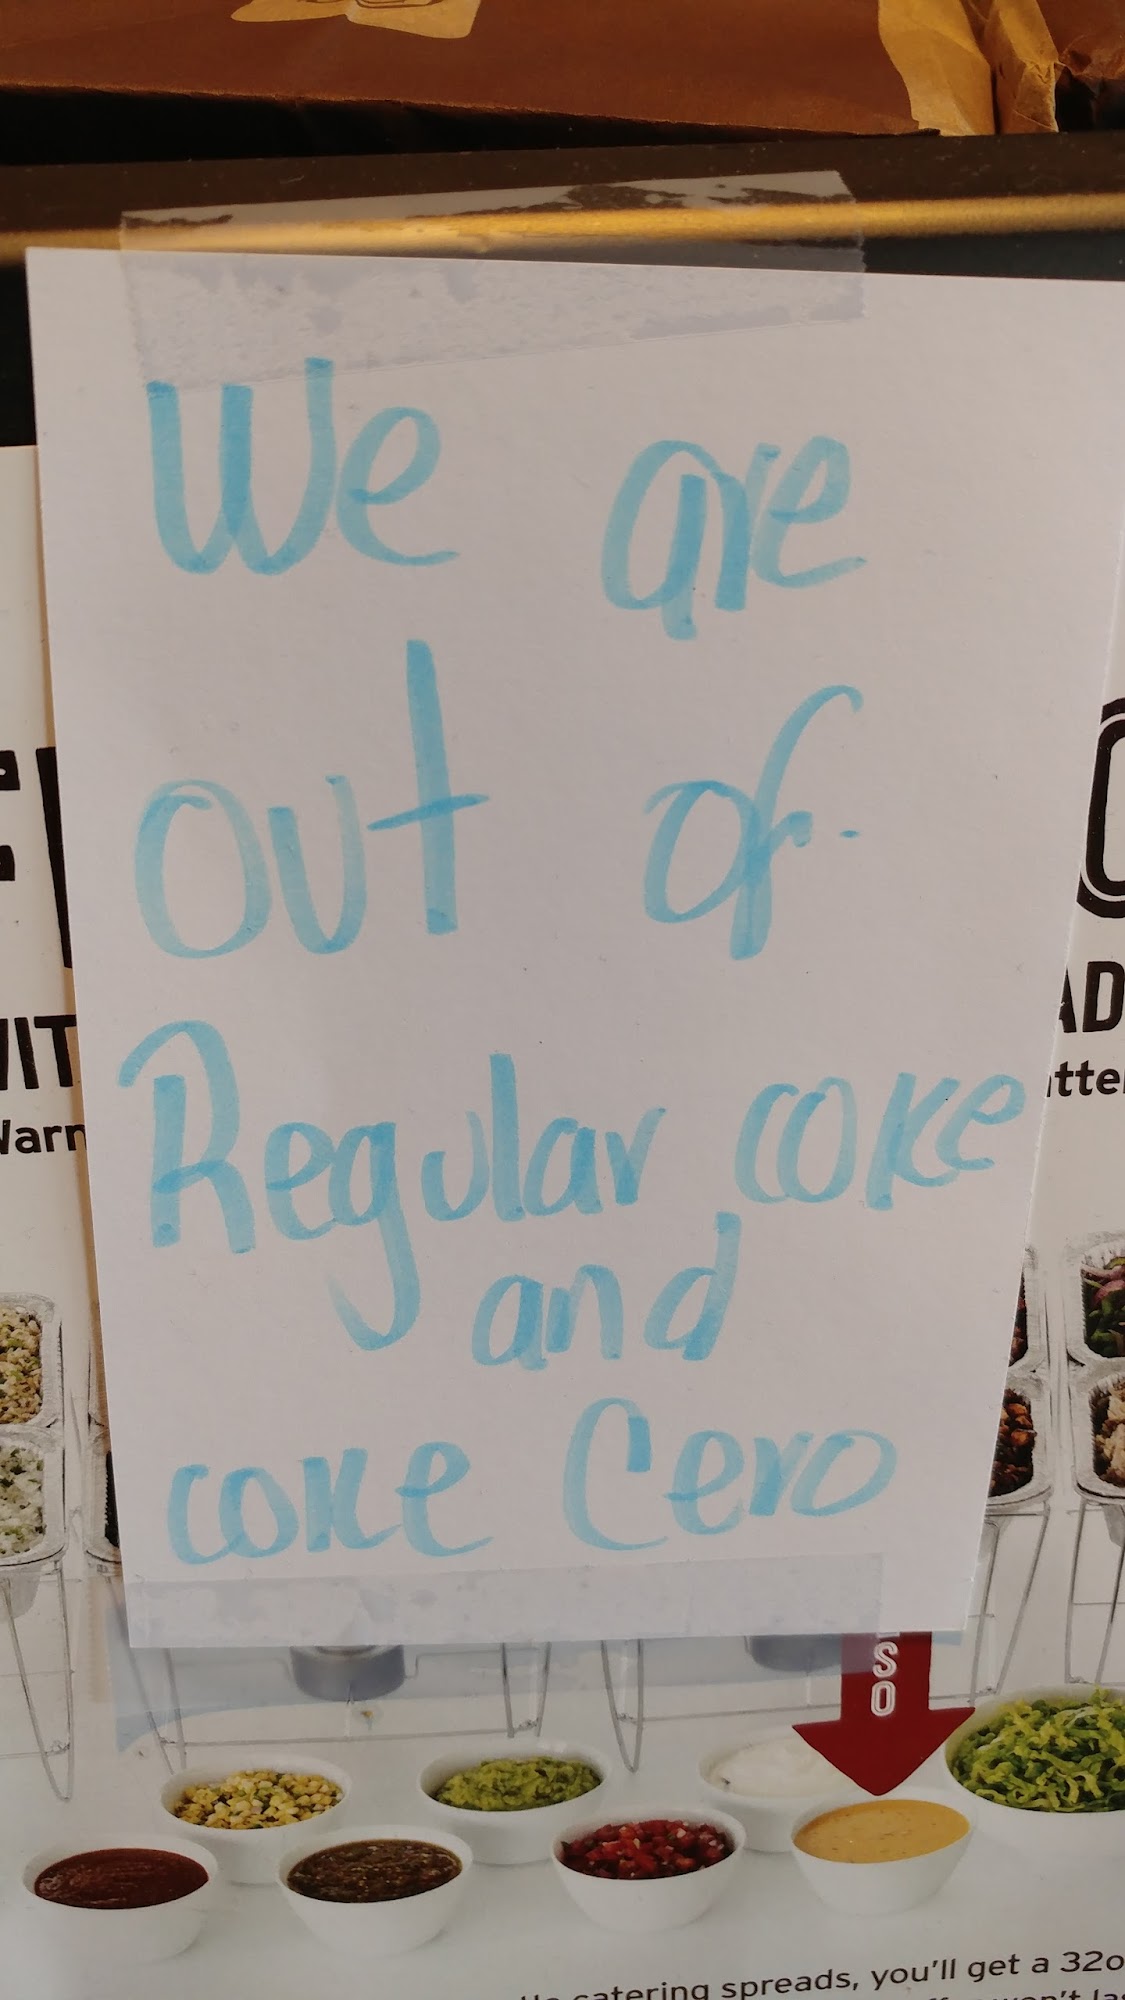 We are
out of
Regular coke
and
coke Cero
WIT
Warn
AD
atte
ESO
catering spreads, you'll get a 32o